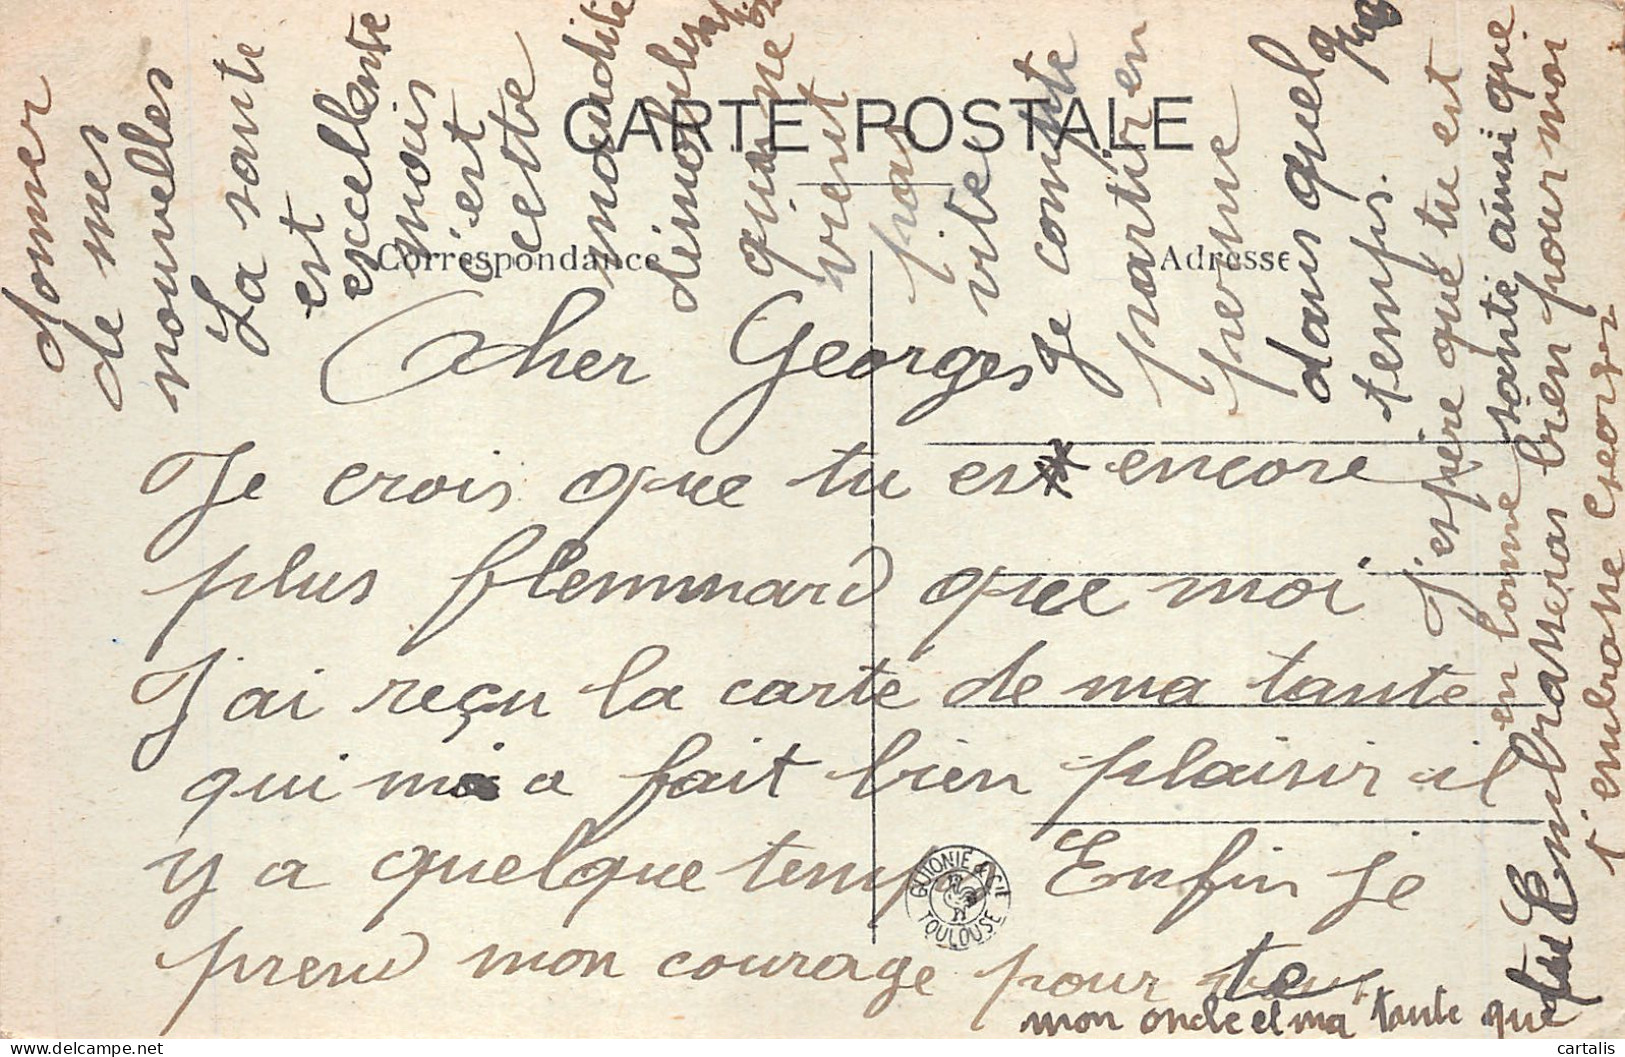 CARTE POSTALE
Correspondance
Adresse
Cher Georges
Je crois que tu es encore
plus flemmard que moi
J'ai reçu la carte de ma tante
qui m'a fait bien plaisir il
y a quelque temps Enfin je
prend mon courage pour te
donner
de mes
nouvelles
La sante
est
excellente
mais
c'est
cette
maudite
qui ne
vient
pas
vite
Je compte
partir en
perme
dans quel
temps.
J'espère que tu est
en bonne santé ainsi que
mon oncle et ma tante que
tu Embrasseras bien pour moi
t'embrasse
GUIONIE & Cie
TOULOUSE
cartalis